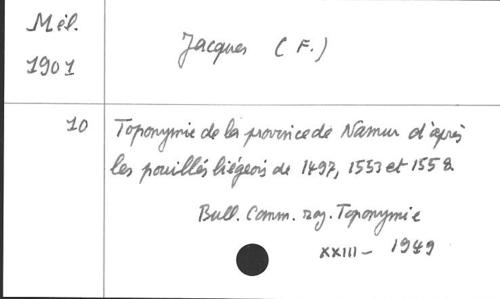 Mél.
1901
Jacques (F.)
10
Toponymie de la province de Namur d'après
les pouillés liégeois de 1497, 1553 et 1558
Bull. Comm. roy. Toponymie
XXIII - 1949